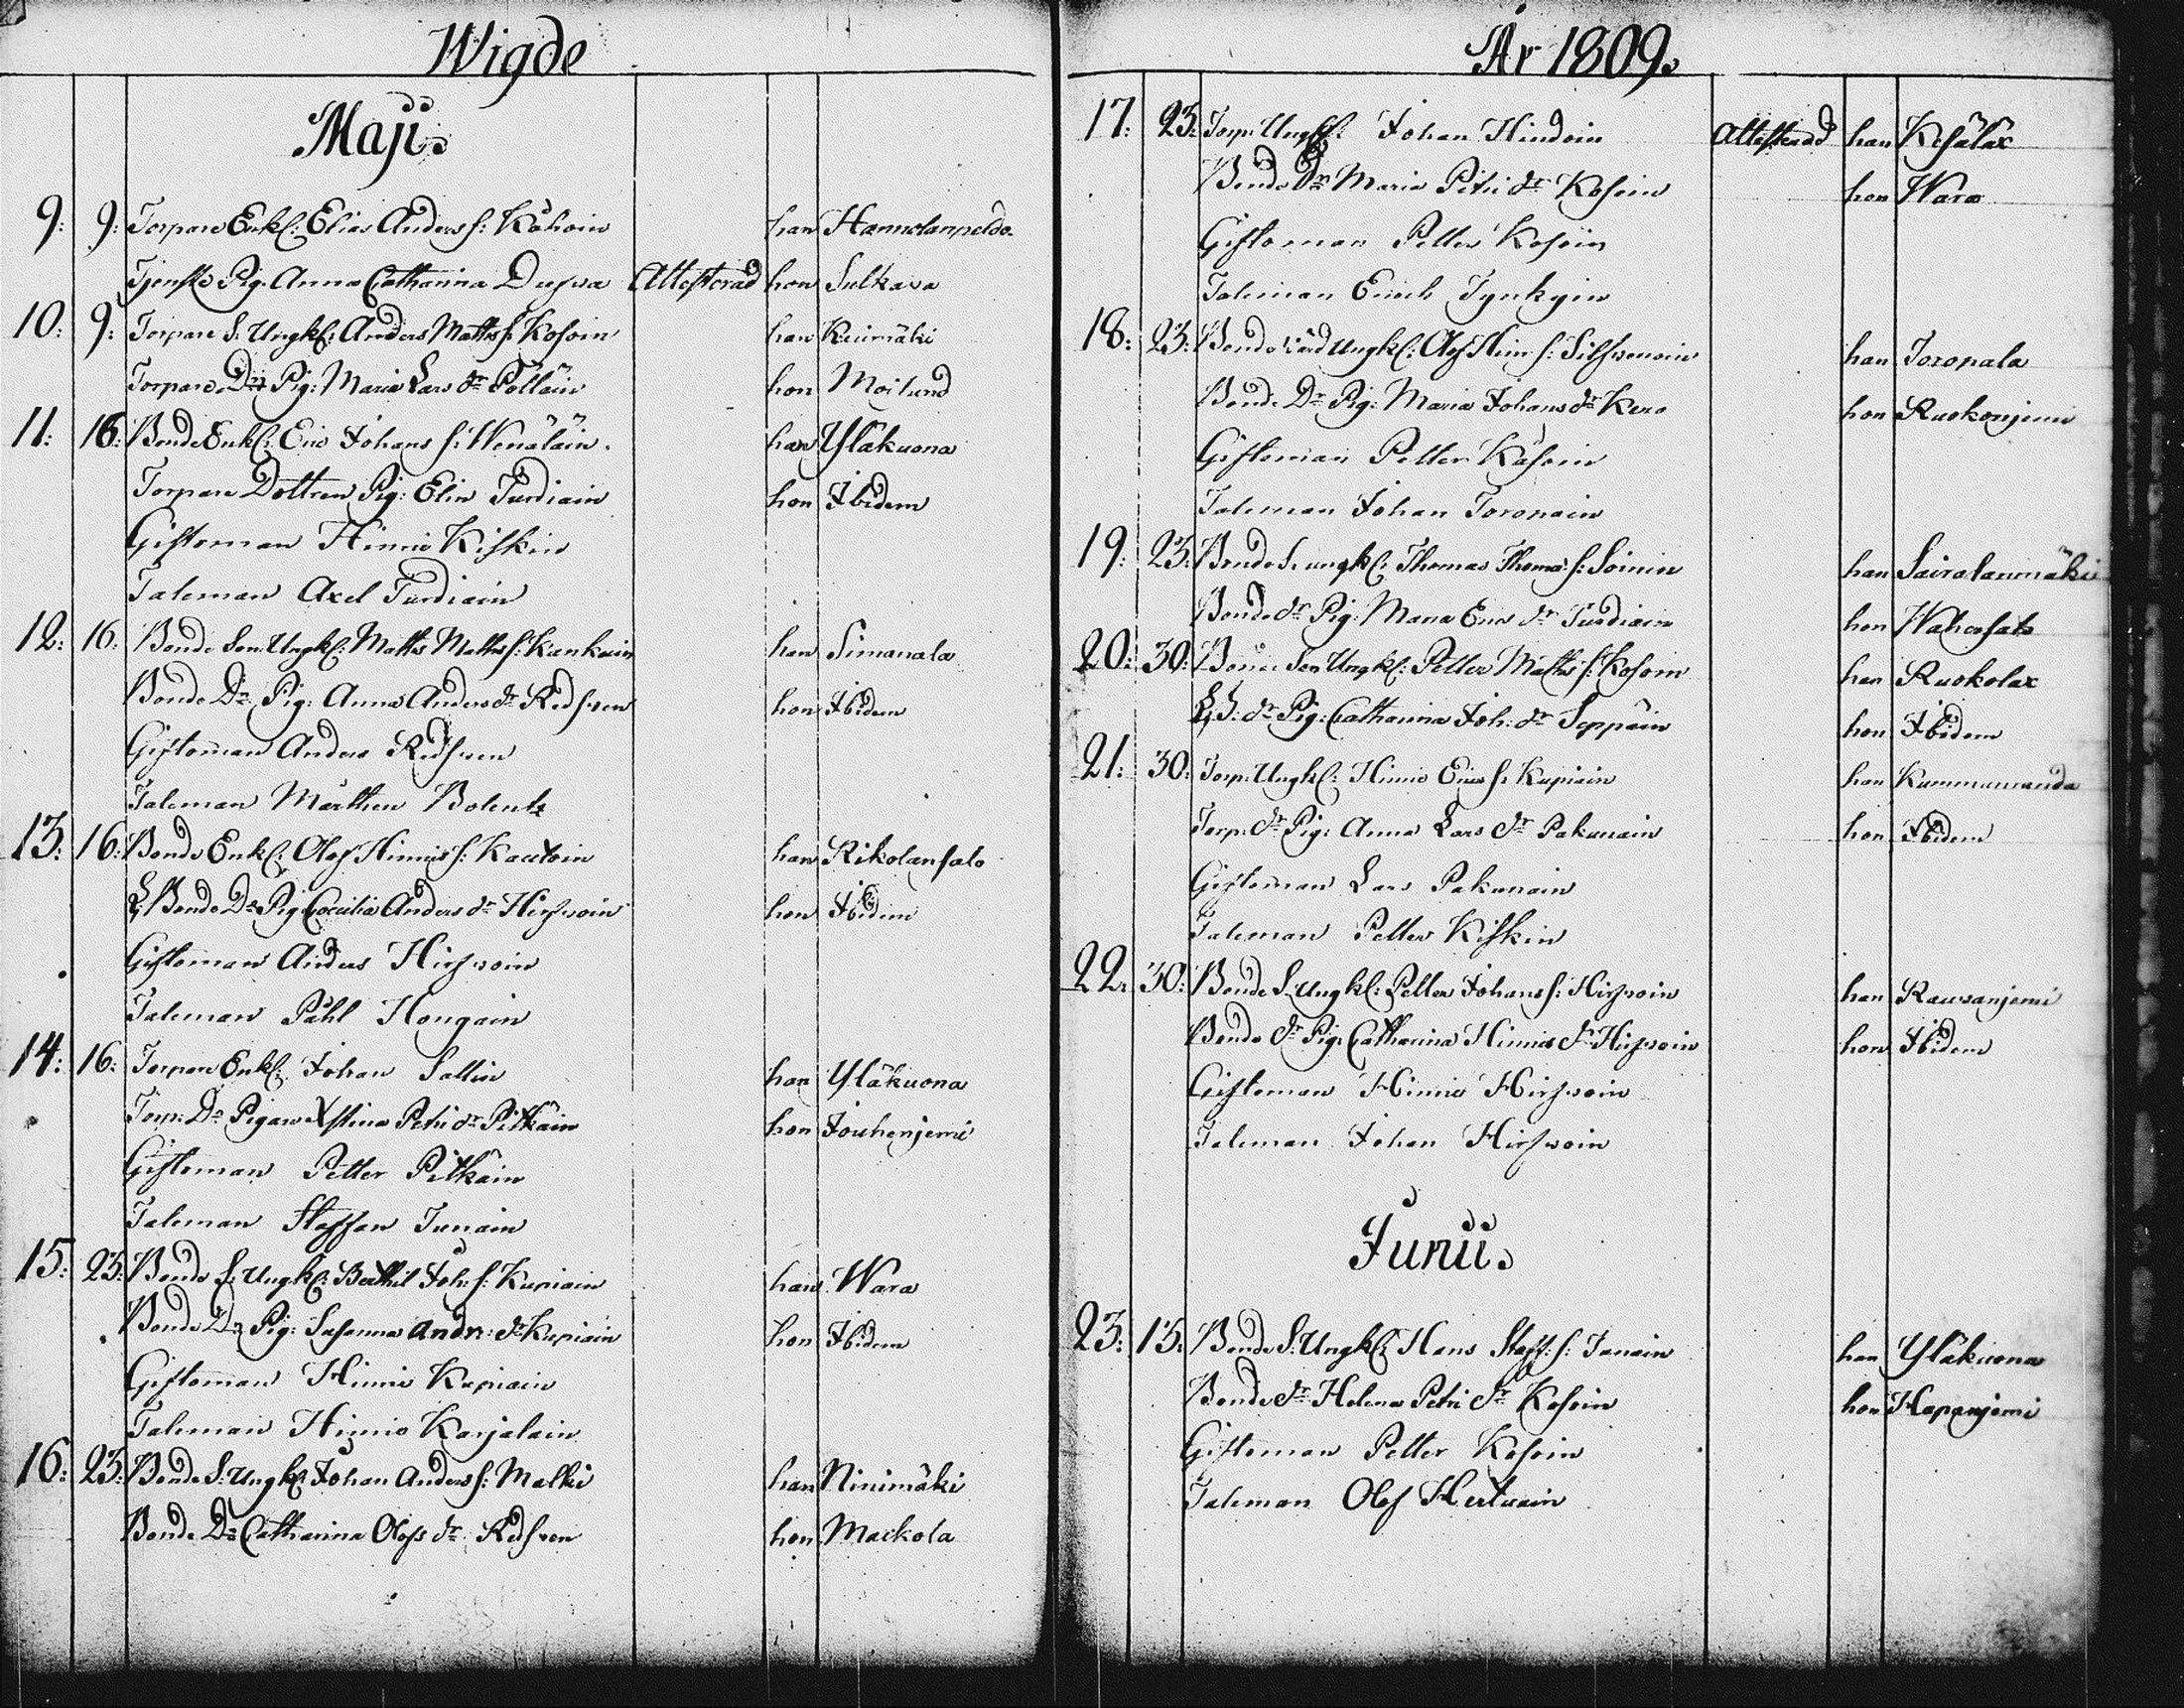 Wigde
Maji.
9: 9: Torpare Enkl: Elias Anders s: Kåhoin han Hannolanpeldo
Tjenste Pig. Anna Catharina Duswa Attesterad hon Sulkava
10: 9: Torpare S: Ungkl: Anders Matts s: Kosoin han Keiumäki
Torpare Dr: Pig: Maria Lars dr Pölläin hon Moilund
11: 16: Bonde Enkl: Eric Johans s: Wenäläin han Yläkuona
Torpare Dottren Pig: Elin Turdiain hon Ibidem
Giftoman Hinric Kiskin
Taleman Axel Turdiain
12: 16: Bonde Son Ungkl: Matts Matts s: Kankain han Simanala
Bonde Dr Pig: Anna Anders dr Redsven hon Ibidem
Giftoman Anders Redsven
Taleman Mårthen Bolentz
13: 16: Bonde Enkl: Olof Hinrics s: Kautoin han Rikolansalo
Bonde Dr Pig Cæcilia Anders dr Hirswoin hon Ibidem
Giftoman Anders Hirswoin
Taleman Påhl Hongain
14: 16: Torpare Enkl: Johan Sallin han Yläkuona
Torp: Dr Pigan Xstina Petri dr Pitkäin hon Jouhenjemi
Giftoman Petter Pitkäin
Taleman Staffan Tunain
15: 23: Bonde S: Ungkl: Berthil Joh: s: Kupiain han Wara
Bonde Dr Pig: Susanna Andr: dr Kupiain hon Ibidem
Giftoman Hinric Kupiain
Taleman Hinric Karjalain
16: 23: Bonde S: Ungkl: Johan Anders s: Malki han Ninimäki
Bonde Dr Catharina Olofs dr Redsven hon Mackola
År 1809.
17: 23: Torp: Ungkl: Johan Hindoin Attesterad han Kesälax
Bonde Dr Maria Petri dr Kosoin hon Wara
Giftoman Petter Kosoin
Taleman Enoch Tynkyin
18: 23: Bonde Ungkl: Olof Hinr: s: Silswenoin han Toropala
Bonde Dr Pig: Maria Johans dr Kero hon Ruokonjemi
Giftoman Petter Kåsoin
Taleman Johan Toropain
19: 23: Bonde S: ungkl: Thomas Thoms: s: Soinin han Sairalanmäki
Bonde dr Pig: Maria Erics dr Turdiain hon Wahersalo
20: 30: Bonde Son Ungkl: Petter Matts s: Kosoin han Ruokolax
dr Pig: Catharina Joh: dr Seppäin hon Ibidem
21: 30: Torp: Ungkl: Hinric Erics s: Kupiain han Kummunranda
Torp: dr Pig: Anna Lars dr Pakunain hon Ibidem
Giftoman Lars Pakunain
Taleman Petter Kiskin
22: 30: Bonde S: Ungkl: Petter Johans s: Hirswoin han Rauvanjemi
Bonde dr Pig: Catharina Hinrics dr Hirswoin hon Ibidem
Giftoman Hinric Hirswoin
Taleman Johan Hirswoin
Junii.
23: 13: Bonde S: Ungkl: Hans Staff: s: Tunain han Yläkuona
Bonde dr Helena Petri dr Kosoin hon Hapanjemi
Giftoman Petter Kosoin
Taleman Olof Hertuain